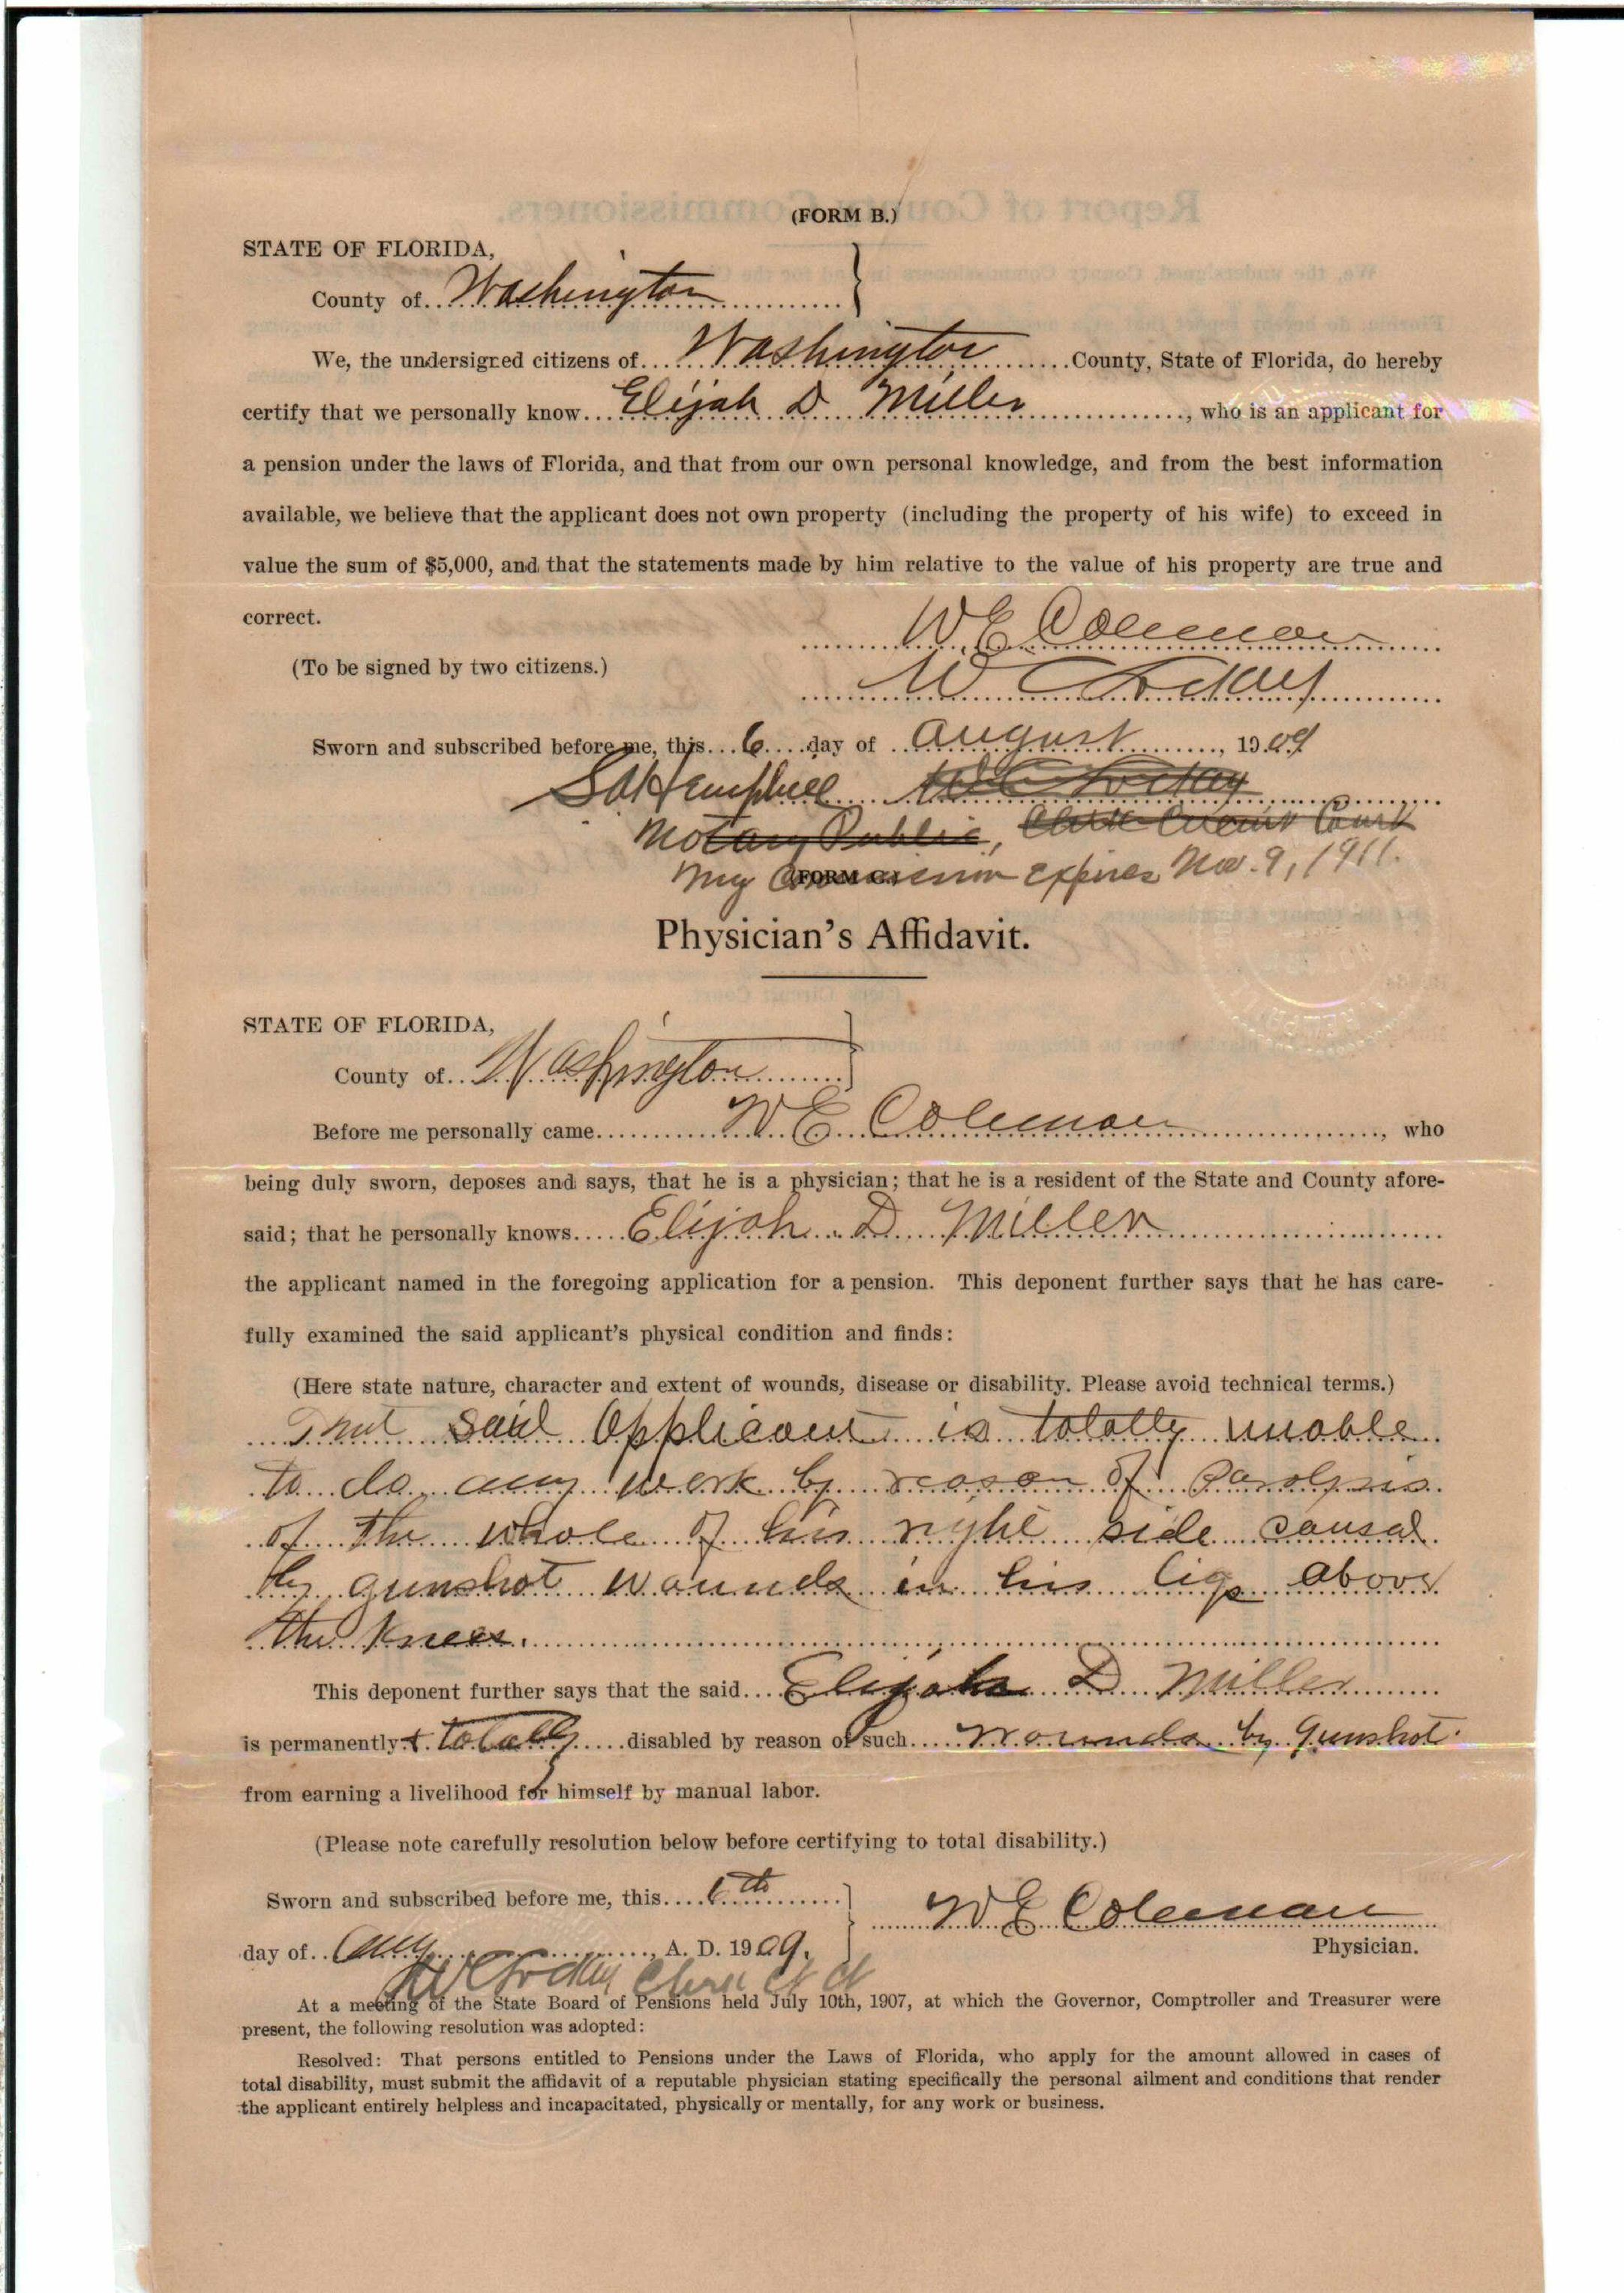 (FORM B.)
STATE OF FLORIDA,
County of Washington
We, the undersigned citizens of Washington County, State of Florida, do hereby
certify that we personally know Elijah D Miller, who is an applicant for
a pension under the laws of Florida, and that from our own personal knowledge, and from the best information
available, we believe that the applicant does not own property (including the property of his wife) to exceed in
value the sum of $5,000, and that the statements made by him relative to the value of his property are true and
correct.
W E Coleman
(To be signed by two citizens.)
W C Lockey
Sworn and subscribed before me, this 6 day of August, 1909
S A Hemphill
Notary Public, Clerk Circuit Court
My Commission Expires Nov. 9, 1911.
(FORM C.)
Physician's Affidavit.
STATE OF FLORIDA,
County of Washington
Before me personally came W E Coleman, who
being duly sworn, deposes and says, that he is a physician; that he is a resident of the State and County afore-
said; that he personally knows Elijah D Miller
the applicant named in the foregoing application for a pension. This deponent further says that he has care-
fully examined the said applicant's physical condition and finds:
(Here state nature, character and extent of wounds, disease or disability. Please avoid technical terms.)
That said Applicant is totally unable
to do any work by reason of Paralysis
of the whole of his right side caused
by gunshot wounds in his legs above
the knees.
This deponent further says that the said Elijah D Miller
is permanently & totally disabled by reason of such wounds by gunshot
from earning a livelihood for himself by manual labor.
(Please note carefully resolution below before certifying to total disability.)
Sworn and subscribed before me, this 6th
W E Coleman
day of Aug, A. D. 1909.
Physician.
W C Lockey Clerk Ct Ct
At a meeting of the State Board of Pensions held July 10th, 1907, at which the Governor, Comptroller and Treasurer were
present, the following resolution was adopted:
Resolved: That persons entitled to Pensions under the Laws of Florida, who apply for the amount allowed in cases of
total disability, must submit the affidavit of a reputable physician stating specifically the personal ailment and conditions that render
the applicant entirely helpless and incapacitated, physically or mentally, for any work or business.